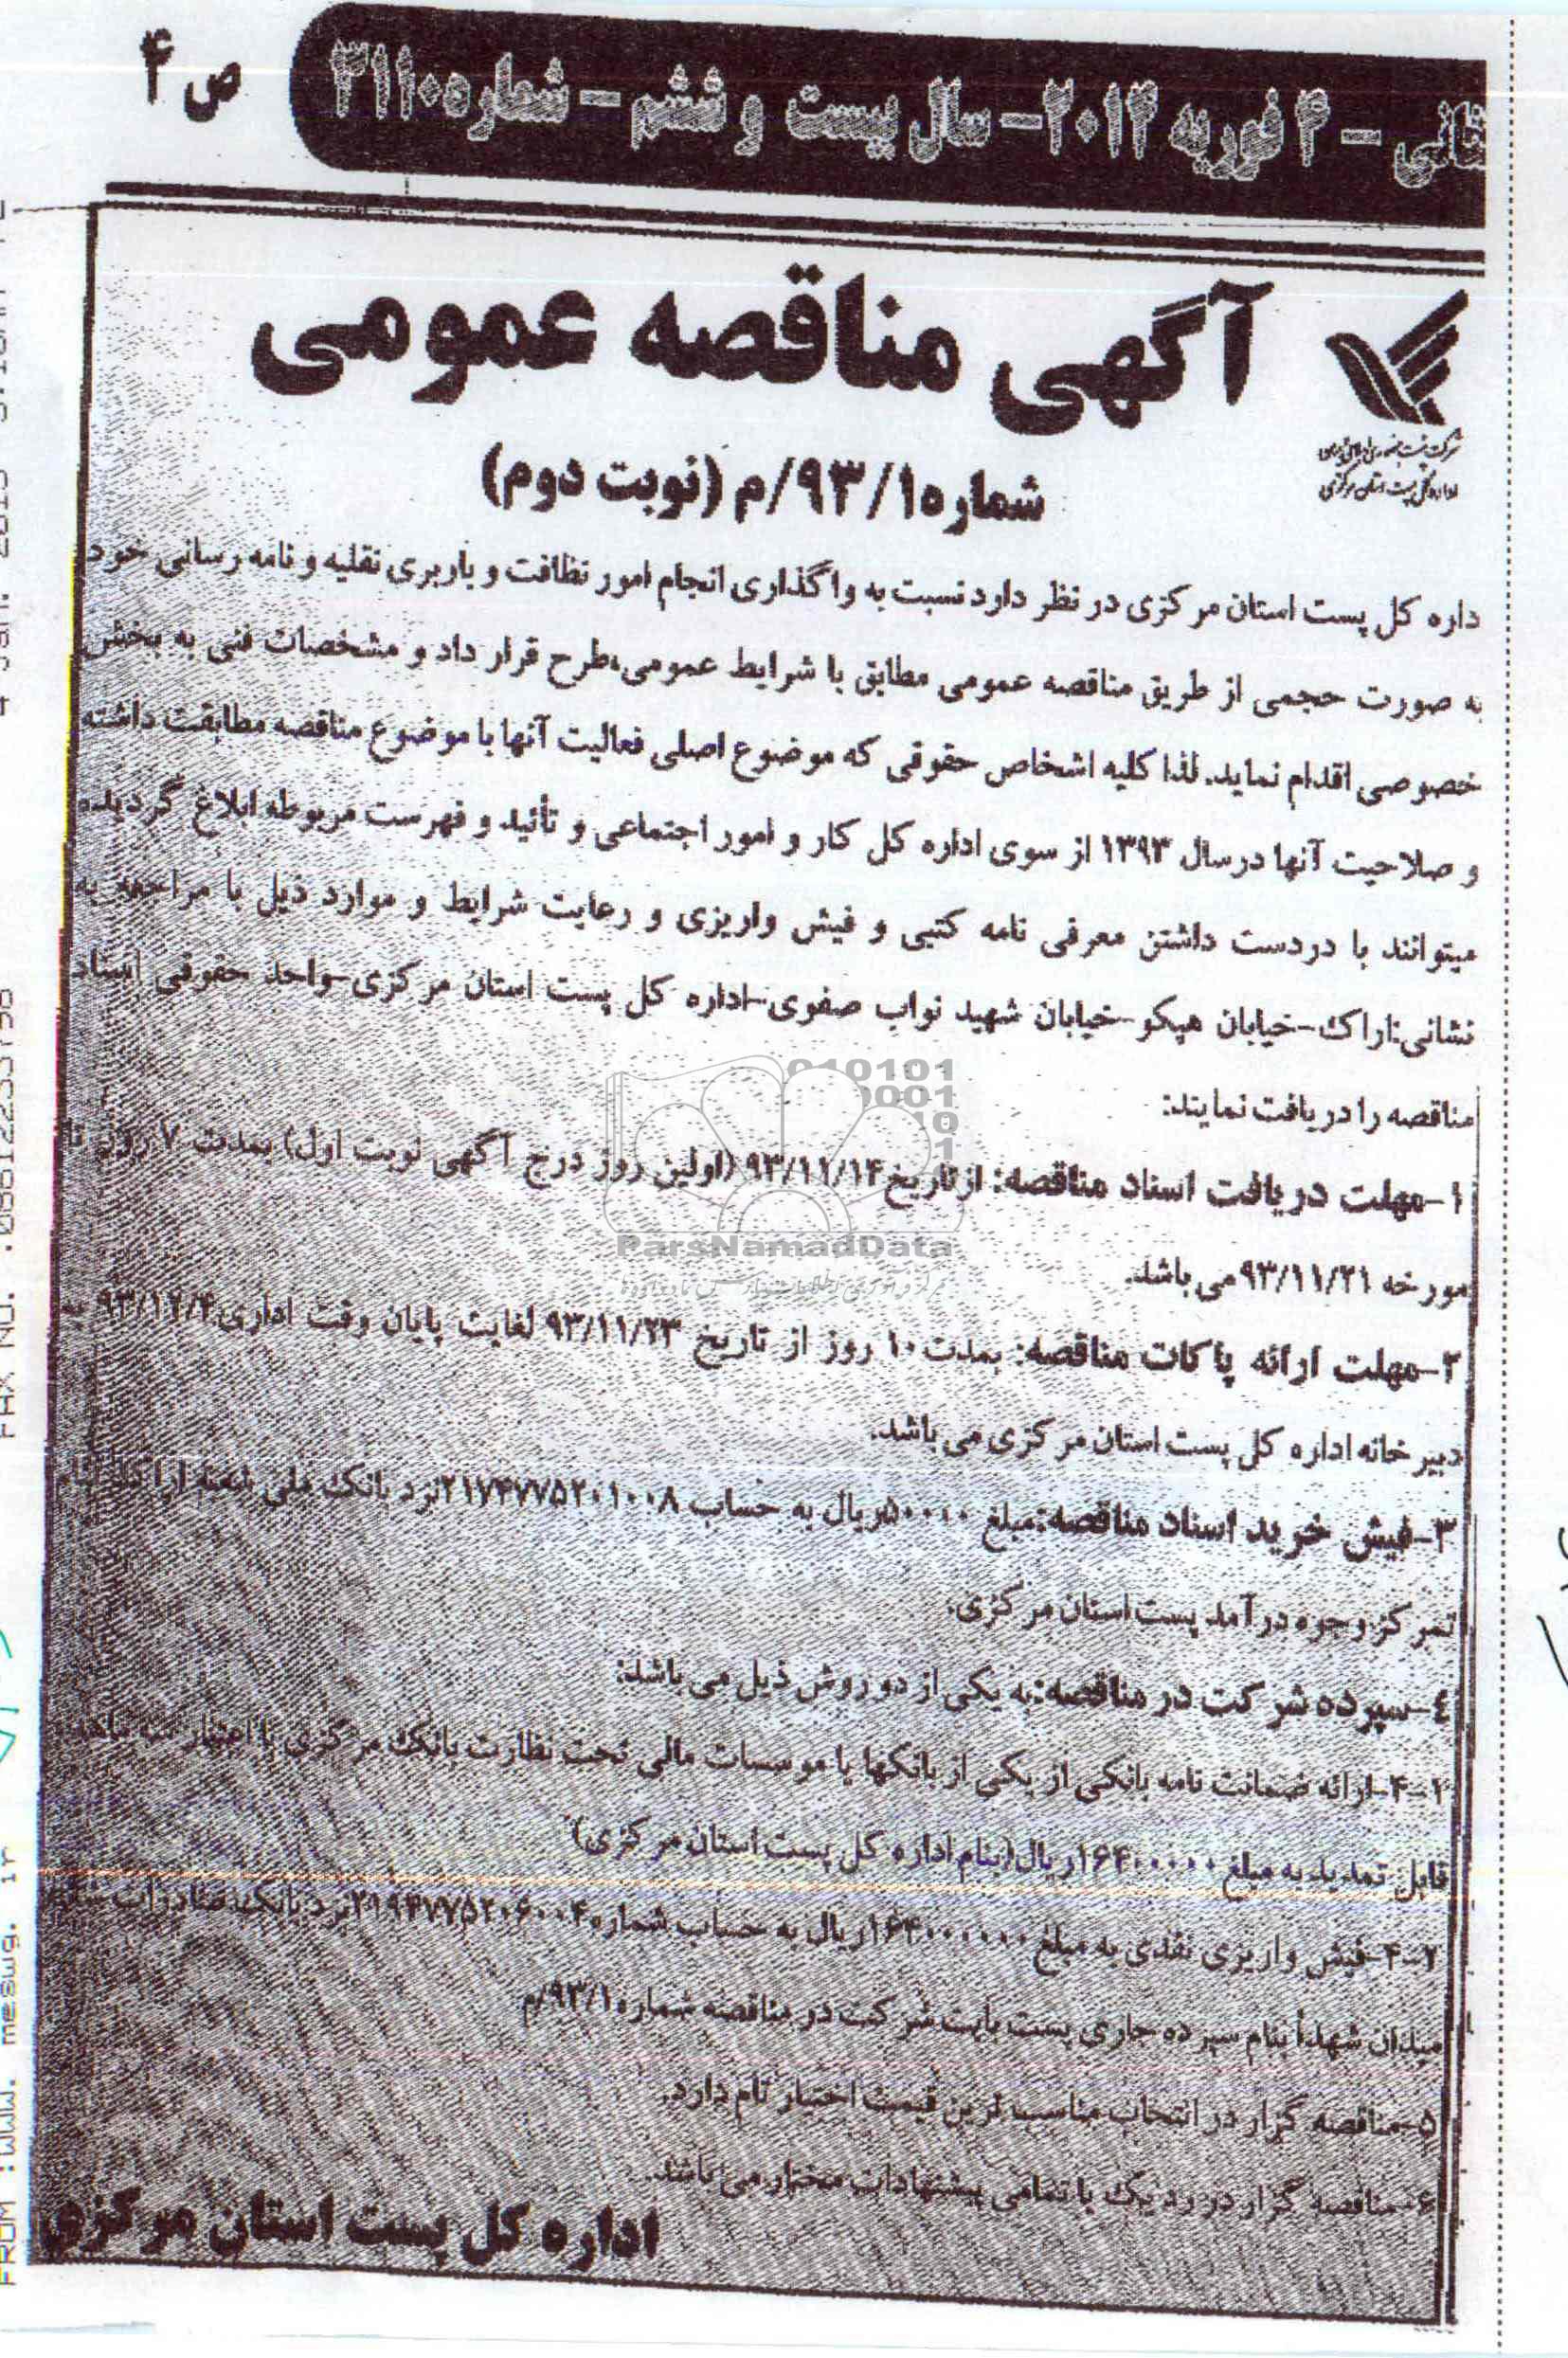 ص ۴
ثانی - ۴ فوریه ۲۰۱۴ - سال بیست و ششم - شماره ۳۱۱۰
آگهی مناقصه عمومی
شماره ۹۳/۱/م (نوبت دوم)
اداره کل پست استان مرکزی
داره کل پست استان مرکزی در نظر دارد نسبت به واگذاری انجام امور نظافت و باربری نقلیه و نامه رسانی خود
به صورت حجمی از طریق مناقصه عمومی مطابق با شرایط عمومی،طرح قرار داد و مشخصات فنی به بخش
خصوصی اقدام نماید. لذا کلیه اشخاص حقوقی که موضوع اصلی فعالیت آنها با موضوع مناقصه مطابقت داشته
و صلاحیت آنها درسال ۱۳۹۳ از سوی اداره کل کار و امور اجتماعی و تأئید و فهرست مربوطه ابلاغ گردیده
میتوانند با دردست داشتن معرفی نامه کتبی و فیش واریزی و رعایت شرایط و موارد ذیل با مراجعه به
نشانی:اراک-خیابان هپکو-خیابان شهید نواب صفوی-اداره کل پست استان مرکزی-واحد حقوقی اسناد
مناقصه را دریافت نمایند:
۱-مهلت دریافت اسناد مناقصه: ازتاریخ ۹۳/۱۱/۱۴ (اولین روز درج آگهی نوبت اول) بمدت ۷ روز تا
مورخه ۹۳/۱۱/۲۱ می باشد.
۲-مهلت ارائه پاکات مناقصه: بمدت ۱۰ روز از تاریخ ۹۳/۱۱/۲۳ لغایت پایان وقت اداری ۹۳/۱۲/۴ به
دبیرخانه اداره کل پست استان مرکزی می باشد.
۳-فیش خرید اسناد مناقصه:مبلغ ۵۰۰۰۰ریال به حساب ۲۱۷۴۷۷۵۲۰۱۰۰۸نزد بانک ملی شعبه اراک بنام
تمرکز وجوه درآمد پست استان مرکزی.
٤-سپرده شرکت در مناقصه:به یکی از دو روش ذیل می باشد:
۴-۱-ارائه ضمانت نامه بانکی از یکی از بانکها یا موسسات مالی تحت نظارت بانک مرکزی با اعتبار سه ماهه
قابل تمدید به مبلغ ریال(بنام اداره کل پست استان مرکزی)
۴-۲-فیش واریزی نقدی به مبلغ ۱۶۴۰۰۰۰۰۰ریال به حساب شماره ۲۱۹۴۷۷۵۲۰۶۰۰۴نزد بانک صادرات
میدان شهدا بنام سپرده جاری پست بابت شرکت در مناقصه شماره ۹۳/۱/م
۵-مناقصه گزار در انتخاب مناسب ترین قیمت اختیار تام دارد.
۶-مناقصه گزار در رد یک یا تمامی پیشنهادات مختار می باشد.
اداره کل پست استان مرکزی
ParsNamadData